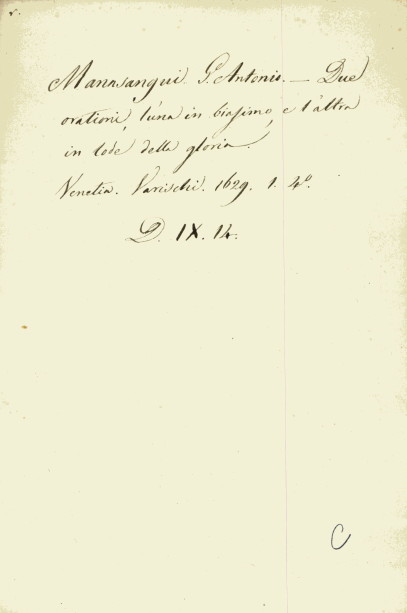 Mannsangui. G. Antonio. — Due
orationi, l'una in biasimo, e l'altra
in lode della gloria.
Venetia. Varischi. 1629. 1. 4º.
D. IX. 14.
C